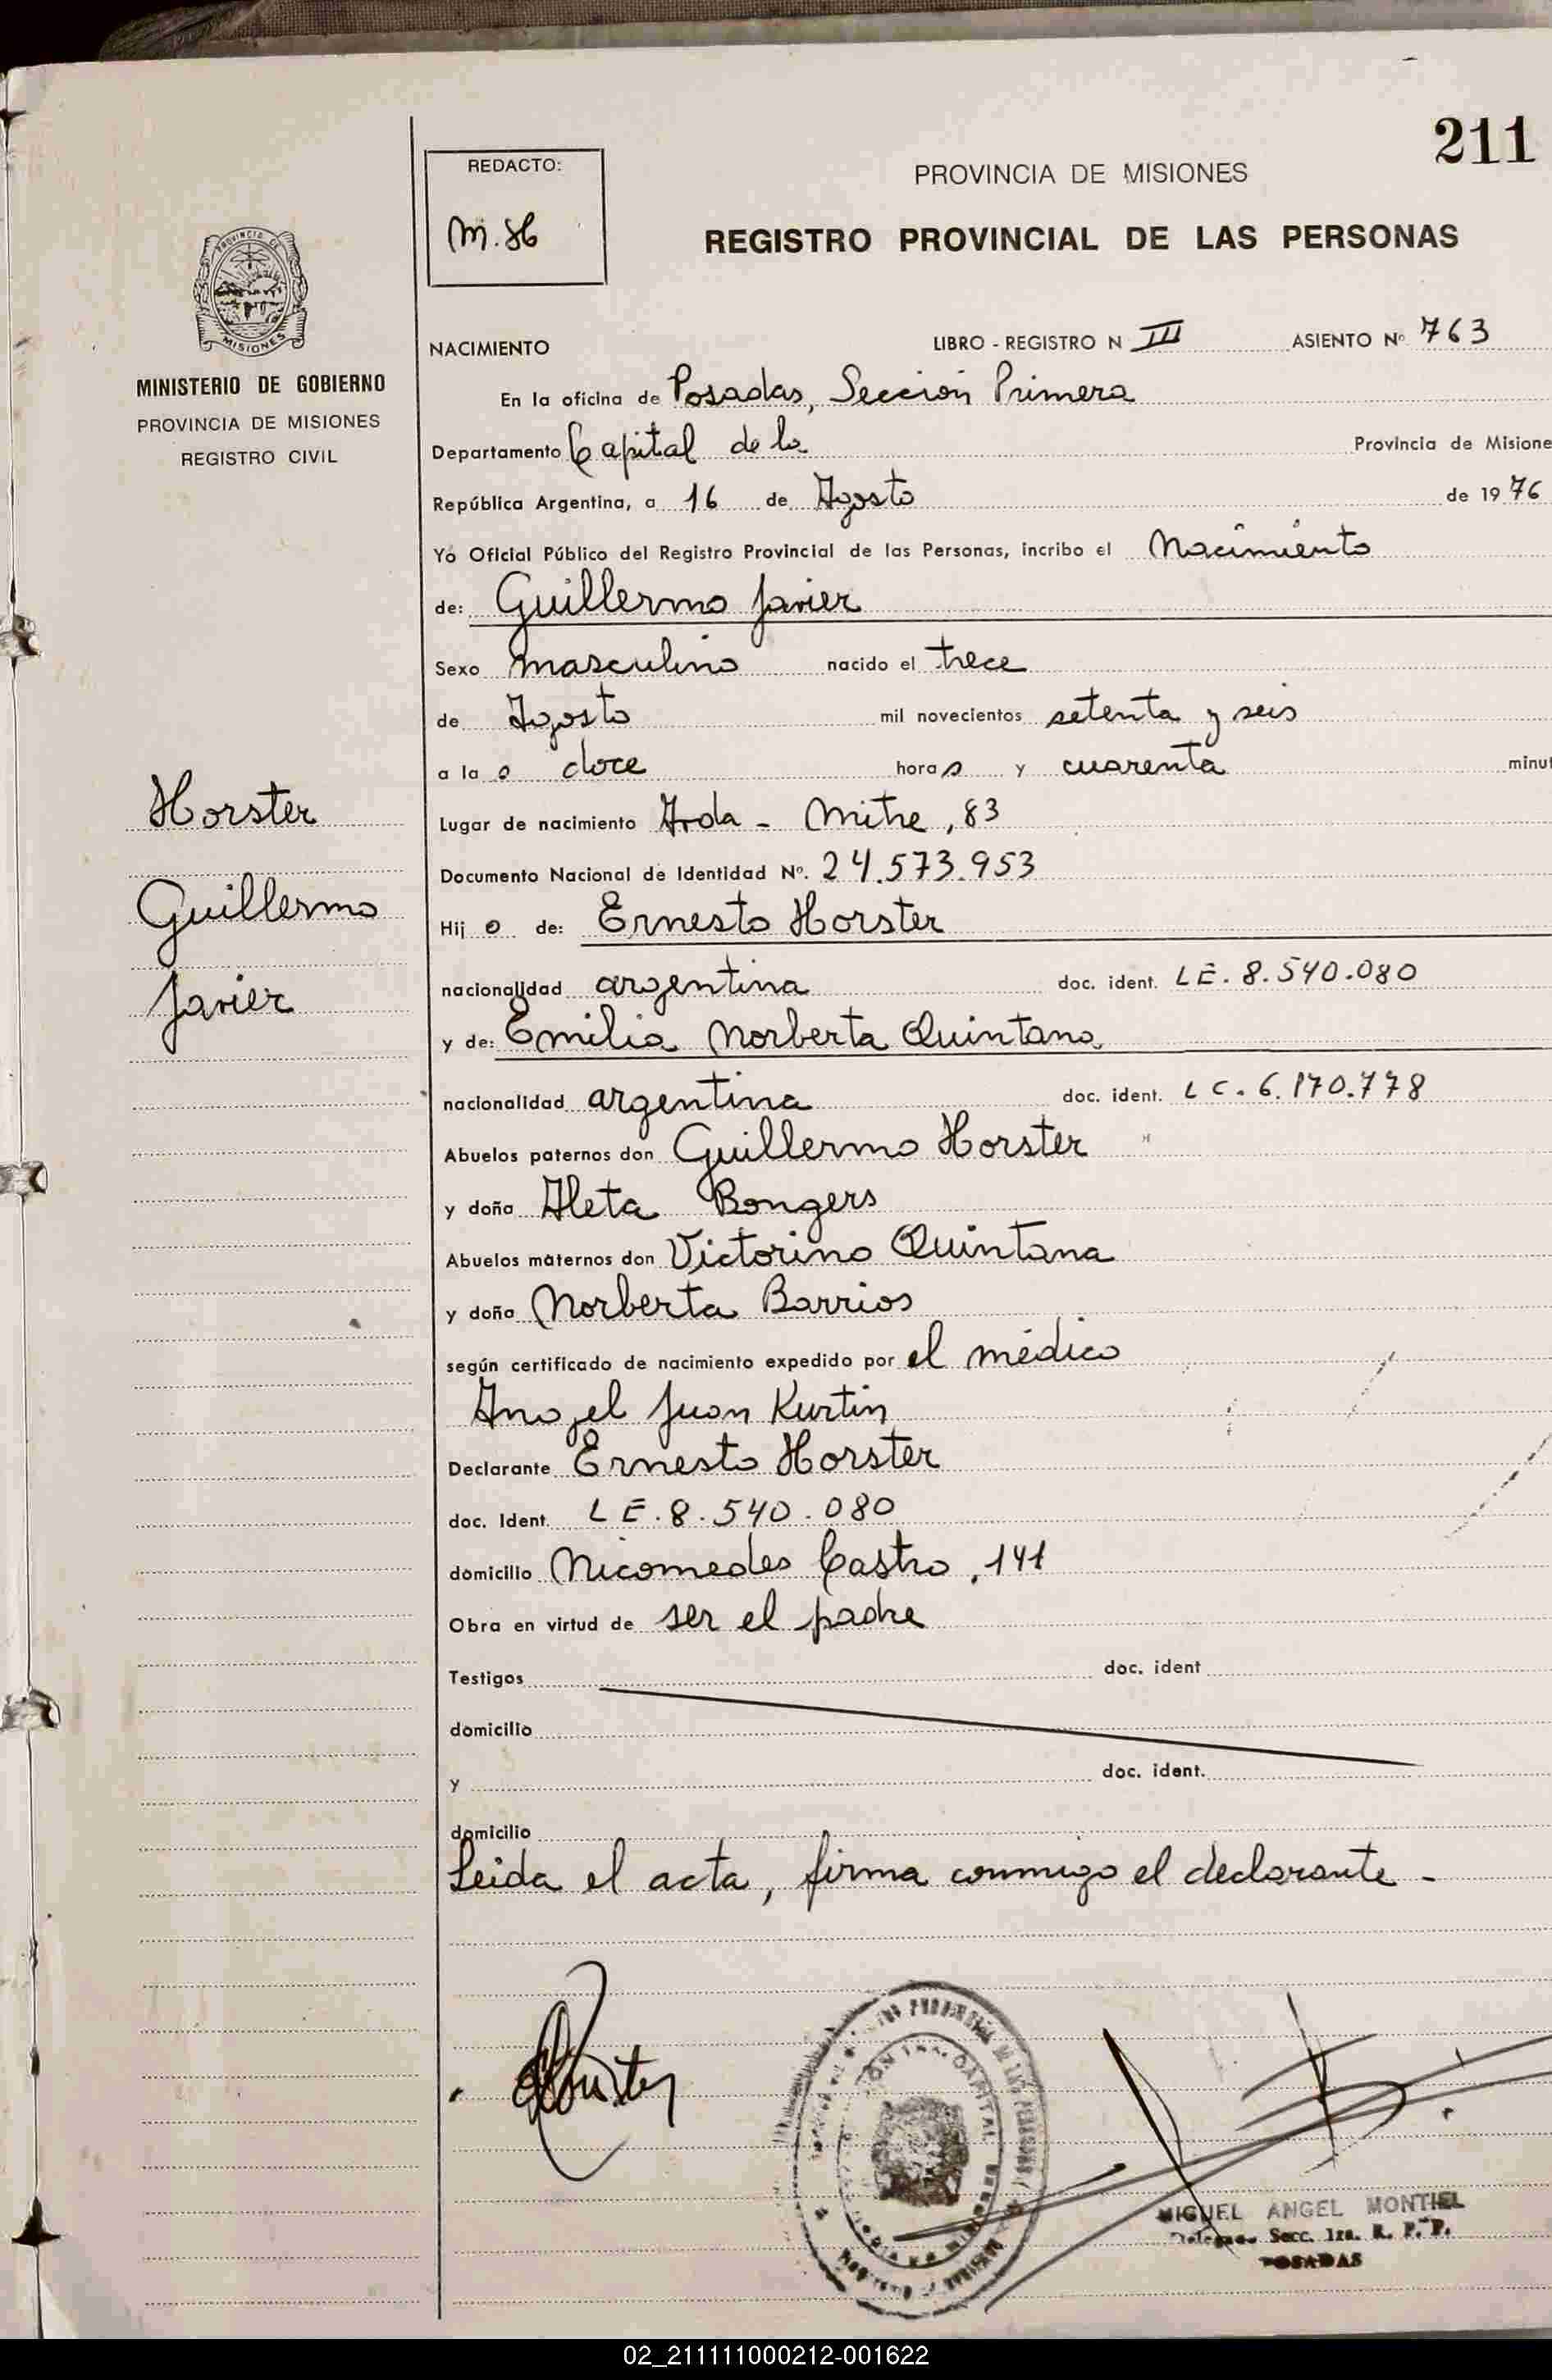 211
REDACTO:
M.H
PROVINCIA DE MISIONES
REGISTRO PROVINCIAL DE LAS PERSONAS
MISIONES
MINISTERIO DE GOBIERNO
PROVINCIA DE MISIONES
REGISTRO CIVIL
NACIMIENTO LIBRO - REGISTRO N III ASIENTO Nº 763
En la oficina de Posadas, Sección Primera
Departamento Capital de la Provincia de Misione
República Argentina, a 16 de Agosto de 1976
Yo Oficial Público del Registro Provincial de las Personas, incribo el Nacimiento
de: Guillermo Javier
Sexo masculino nacido el trece
de Agosto mil novecientos setenta y seis
a las doce horas y cuarenta minut
Horster
Lugar de nacimiento Avda - Mitre, 83
Documento Nacional de Identidad Nº. 24.573.953
Guillermo
Hijo de: Ernesto Horster
nacionalidad argentina doc. ident. LE. 8.540.080
Javier
y de: Emilia Norberta Quintana
nacionalidad argentina doc. ident. LC. 6.170.778
Abuelos paternos don Guillermo Horster
y doña Aleta Bongers
Abuelos maternos don Victorino Quintana
y doña Norberta Barrios
según certificado de nacimiento expedido por el médico
Angel Juan Kurtin
Declarante Ernesto Horster
doc. Ident. LE. 8.540.080
domicilio Nicomedes Castro, 141
Obra en virtud de ser el padre
Testigos doc. ident
domicilio
y doc. ident.
domicilio
Leida el acta, firma conmigo el declarante -
MIGUEL ANGEL MONTIEL
Secc. 1ra. R. P. P.
POSADAS
02_211111000212-001622